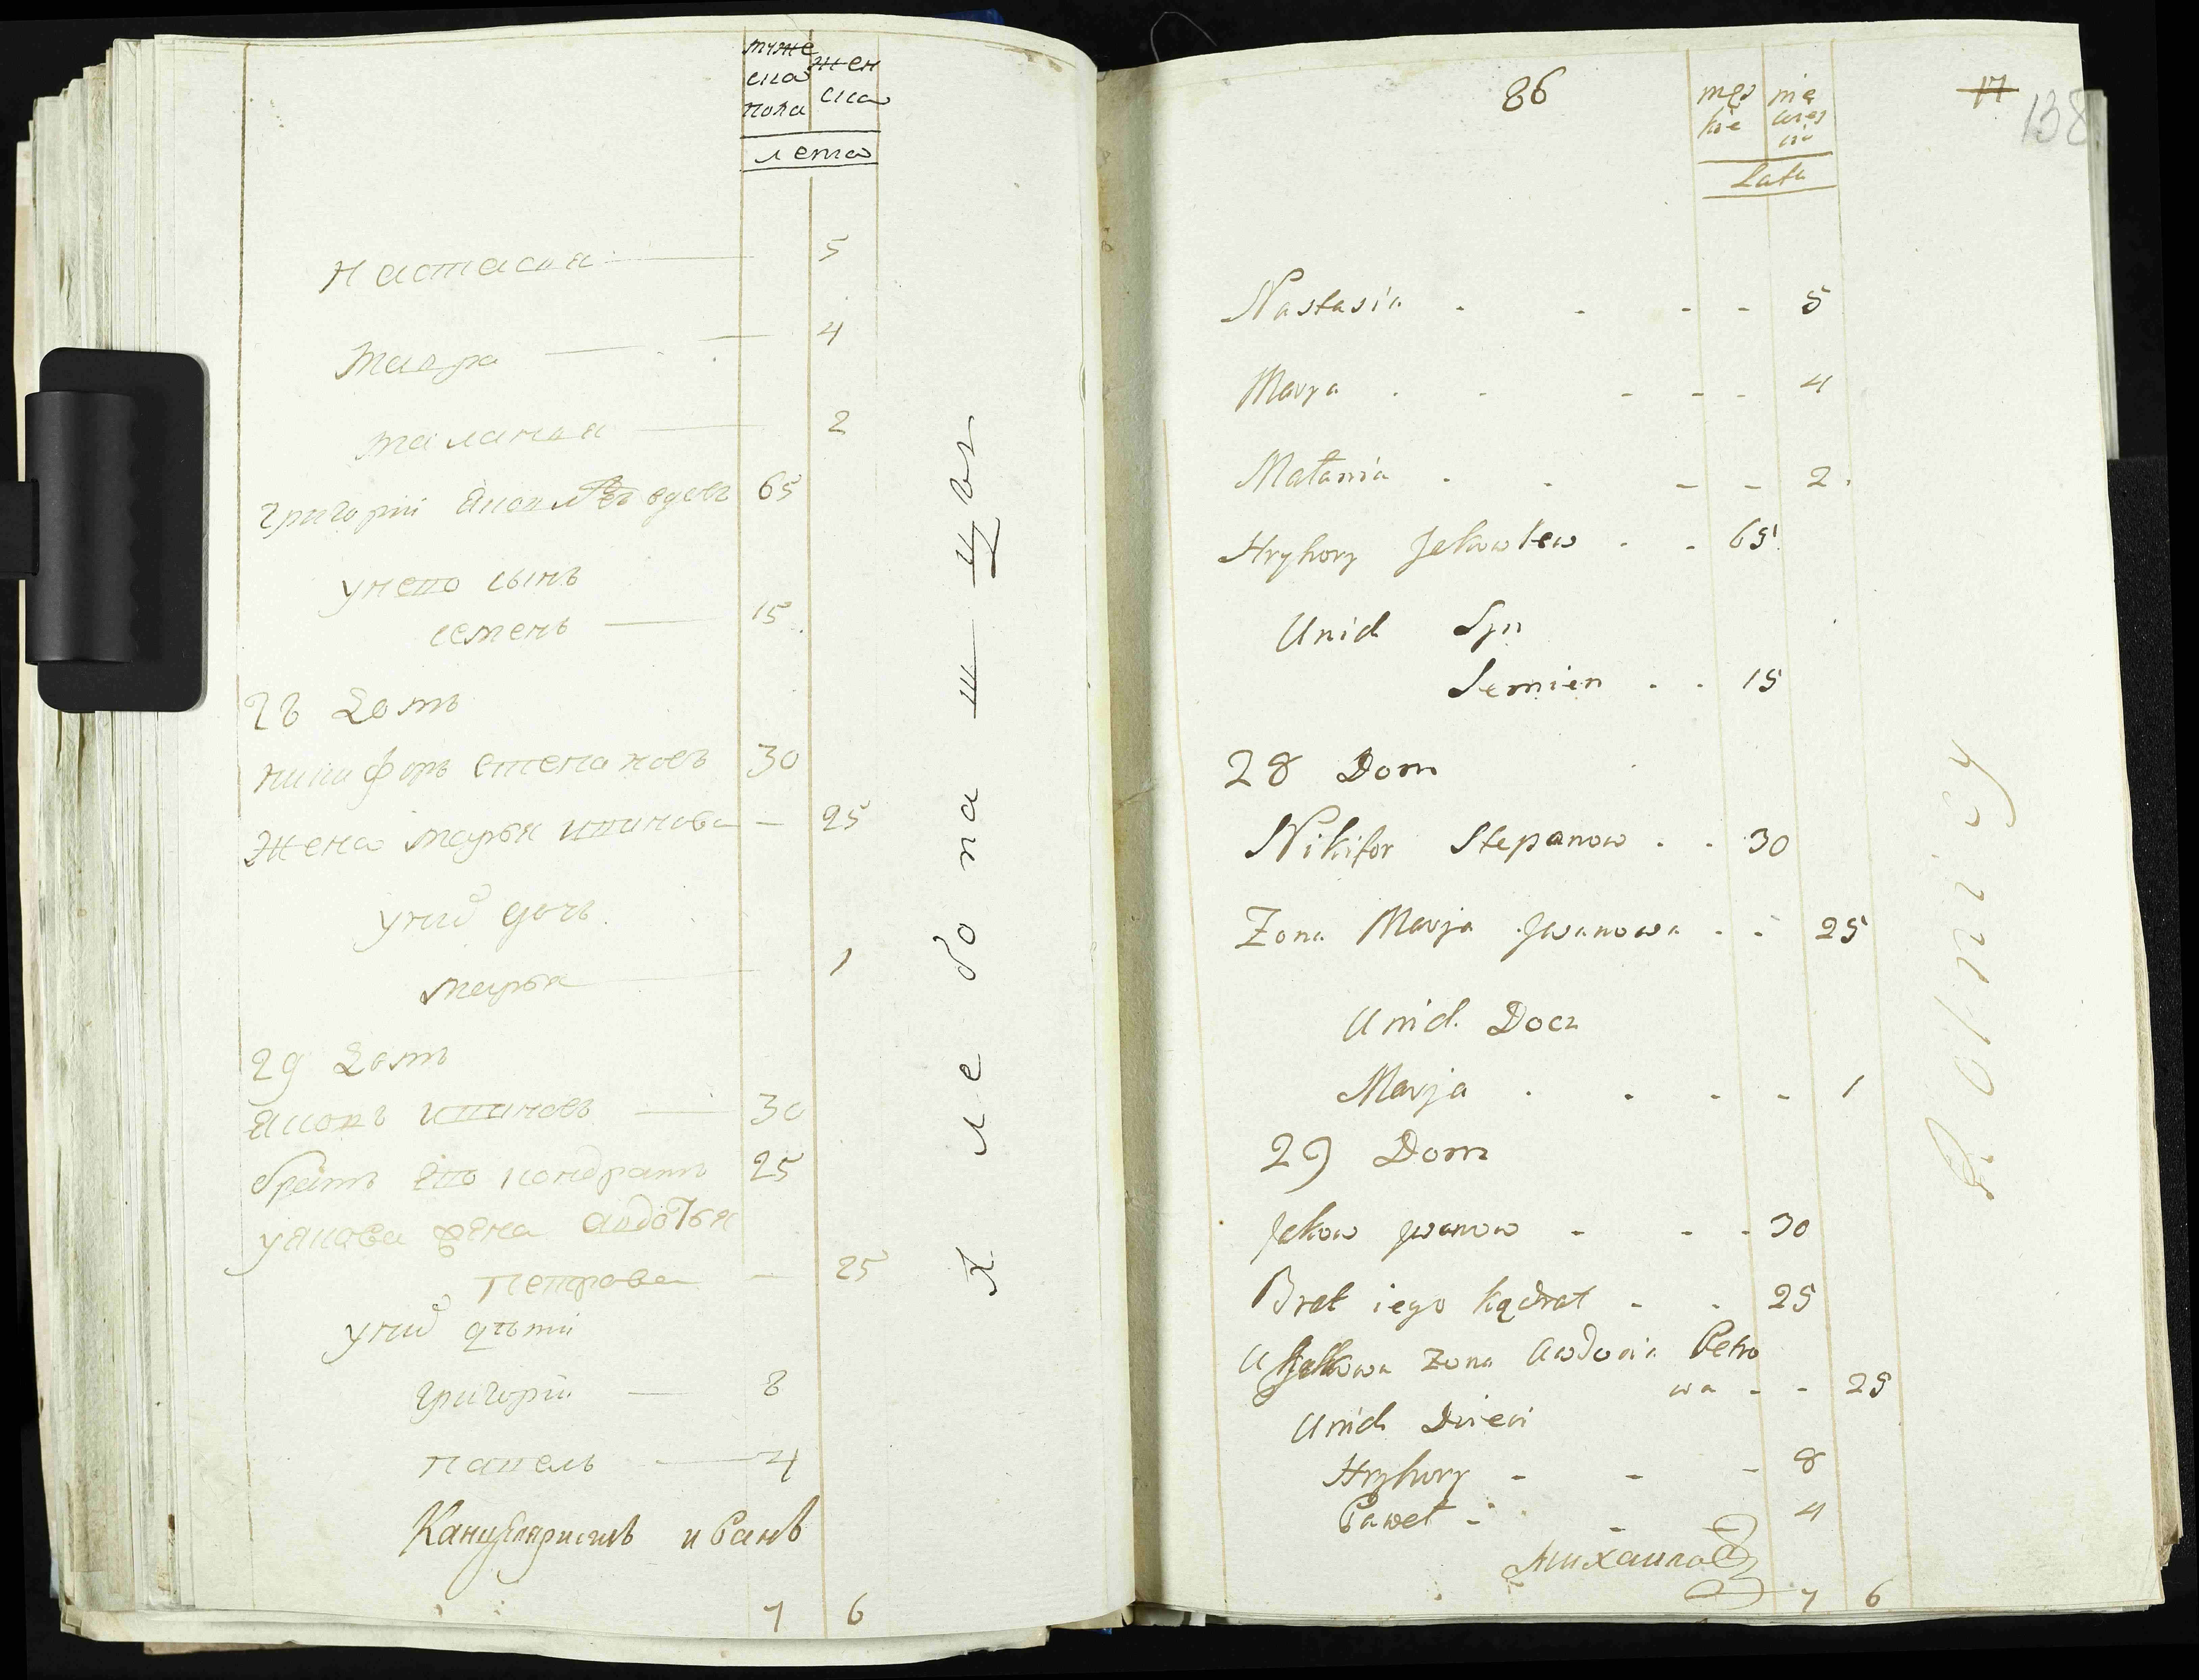 муже жен
ска ска
пола
лета
Настасия 5
Мавра 4
Маланья 2
григорий яковлевъ вдовъ 65
унего сынъ
семенъ 15
28 Домъ
никифоръ степановъ 30
жена марья иванова 25
унид дочь
марья 1
29 Домъ
яковъ ивановъ 30
братъ его кондратъ 25
уякова жена авдотья
петрова 25
унид дѣти
григорий 8
павелъ 4
Канцеляристъ иванъ
7 6
хлебопашцы
86
17
138
męs nie
kie wies
cie
Lata
Nastasia - - - - 5
Mavra - - - - 4
Małania - - - - 2
Hryhory Jakowlew - - 65
Unich Syn
Semien - - 15
28 Dom
Nikifor Stepanow - - 30
Zona Marja Jwanowa - - 25
Unich Docz
Marja - - - - 1
29 Dom
Jakow Jwanow - - - 30
Brat iego Kądrat - - 25
U Jakowa Zona Awdocia Petro
wa - - 25
Unich Dzieci
Hryhory - - - 8
Paweł - - - 4
Михаилов
7 6
Rolnicy